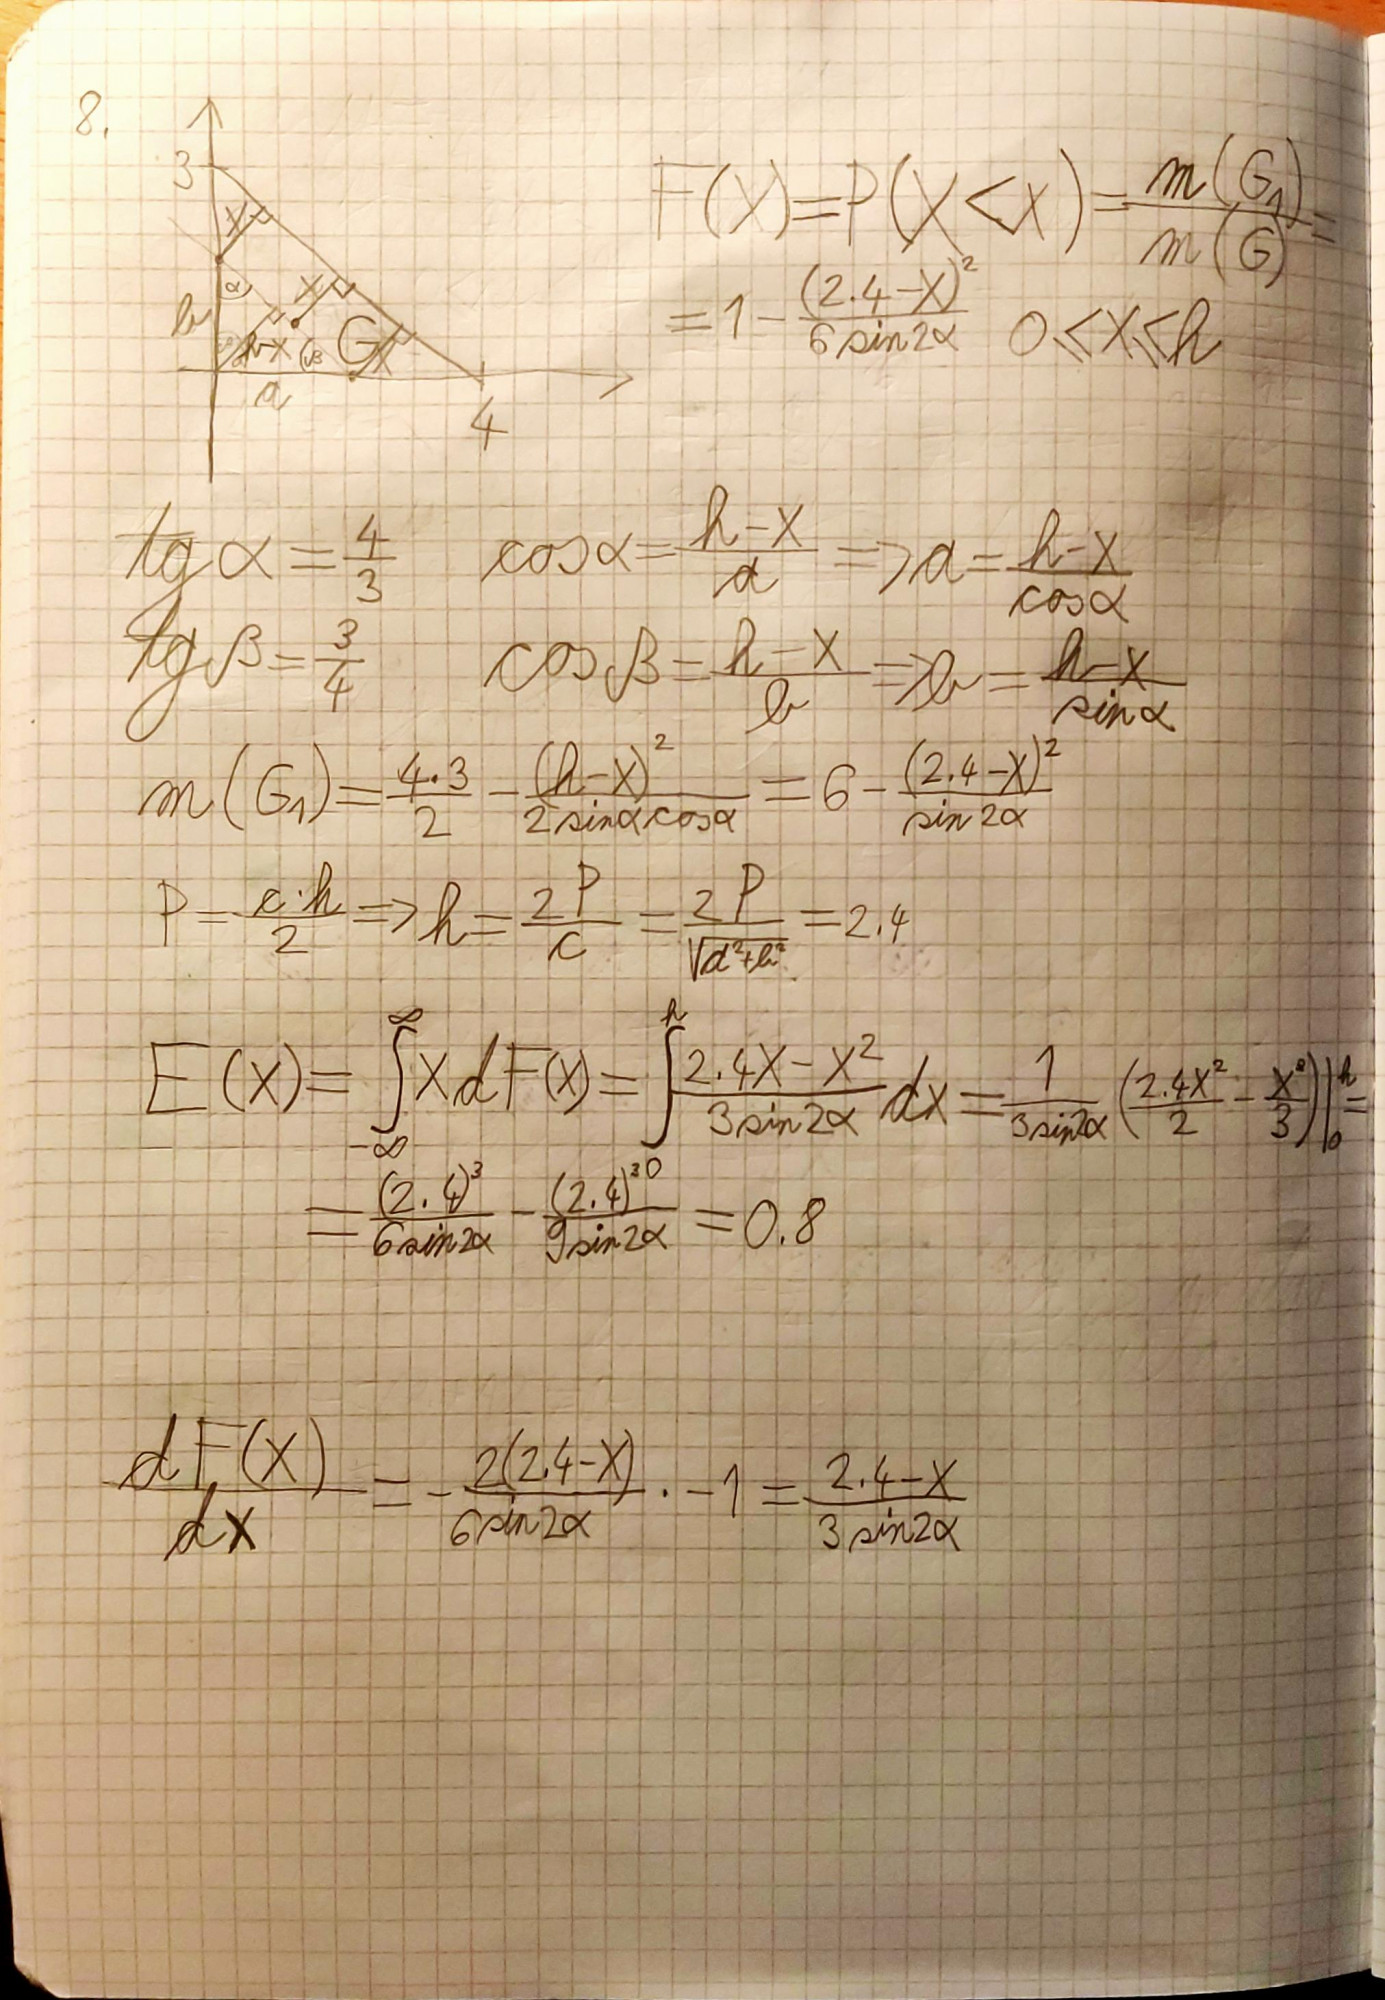 8.
3
x
x
α
b
h-x
β
G
x
a
4
F(x)=P(X<x)=\frac{m(G_1)}{m(G)}=
=1-\frac{(2.4-x)^2}{6sin2α} 0≤x≤h
tgα=\frac{4}{3} cosα=\frac{h-x}{a}=>a=\frac{h-x}{cosα}
tgβ=\frac{3}{4} cosβ=\frac{h-x}{b}=>b=\frac{h-x}{sinα}
m(G_1)=\frac{4·3}{2}-\frac{(h-x)^2}{2sinαcosα}=6-\frac{(2.4-x)^2}{sin2α}
P=\frac{c·h}{2}=>h=\frac{2P}{c}=\frac{2P}{\sqrt{a^2+b^2}}=2.4
E(X)=\int_{-∞}^{∞}xdF(x)=\int_0^h\frac{2.4x-x^2}{3sin2α}dx=\frac{1}{3sin2α}(\frac{2.4x^2}{2}-\frac{x^3}{3})|_0^h=
=\frac{(2.4)^3}{6sin2α}-\frac{(2.4)^3}{9sin2α}=0.8
\frac{dF(x)}{dx}=-\frac{2(2.4-x)}{6sin2α}·-1=\frac{2.4-x}{3sin2α}